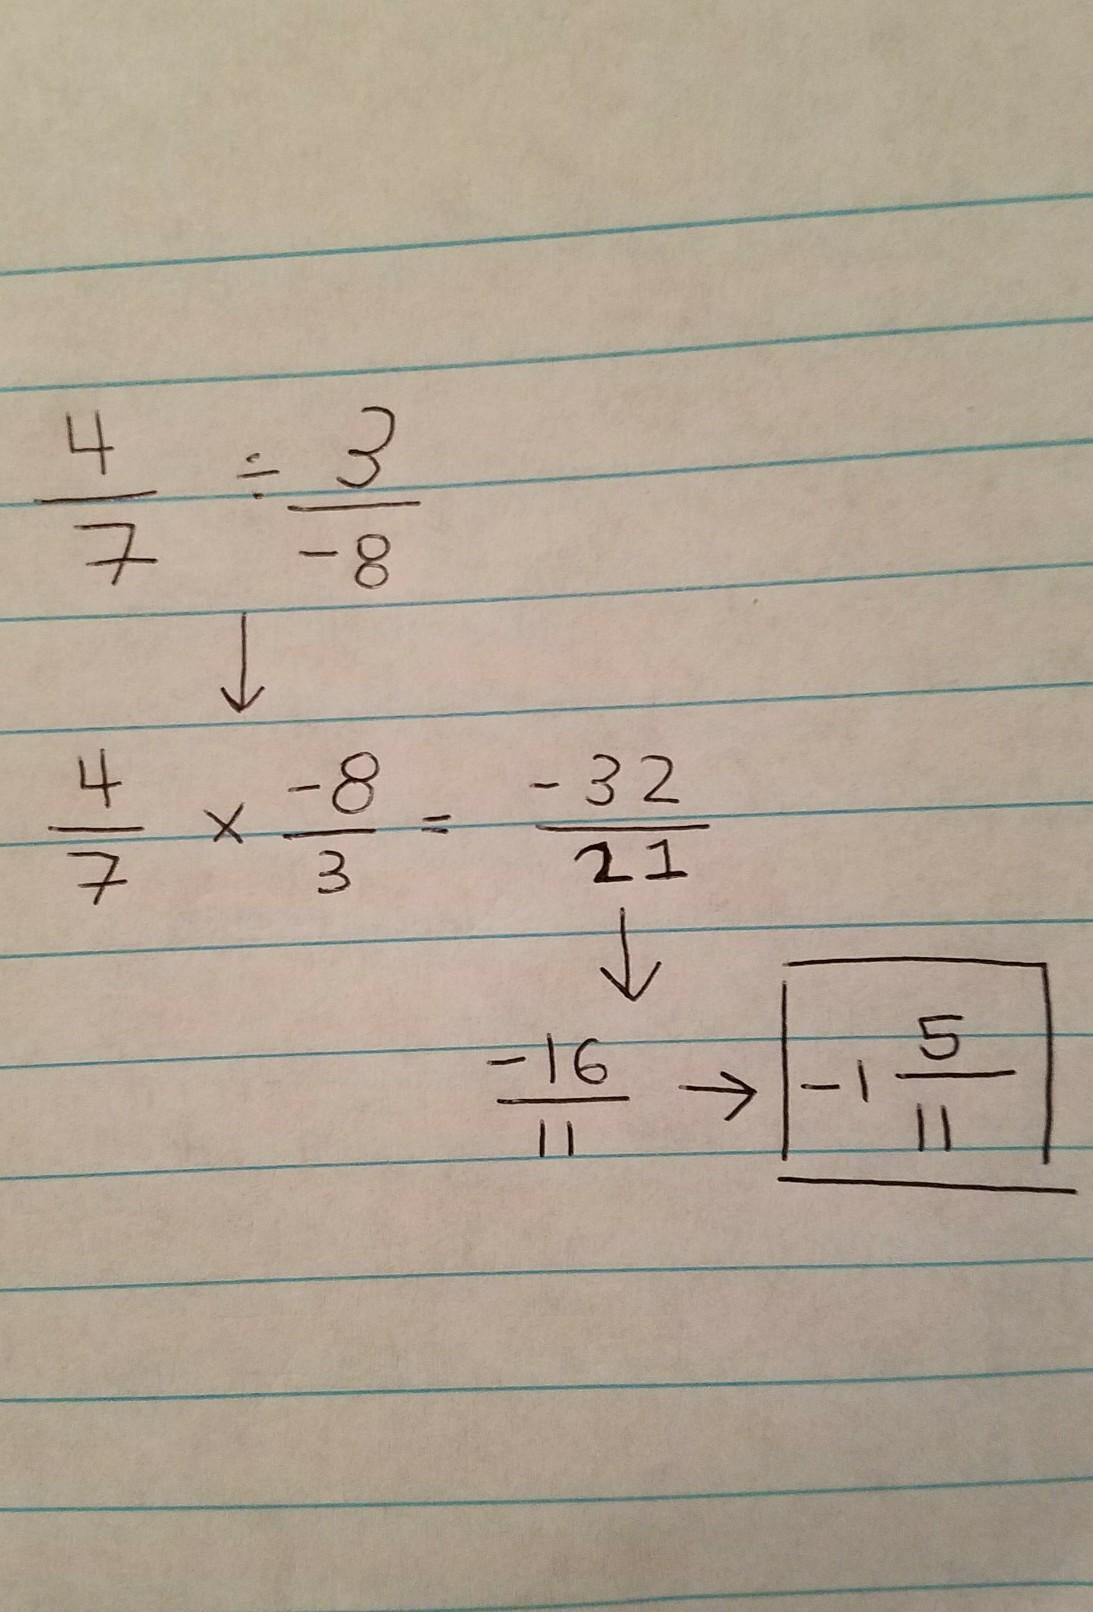 4/7 ÷ 3/-8
↓
4/7 × -8/3 = -32/21
↓
-16/11 → -1 5/11